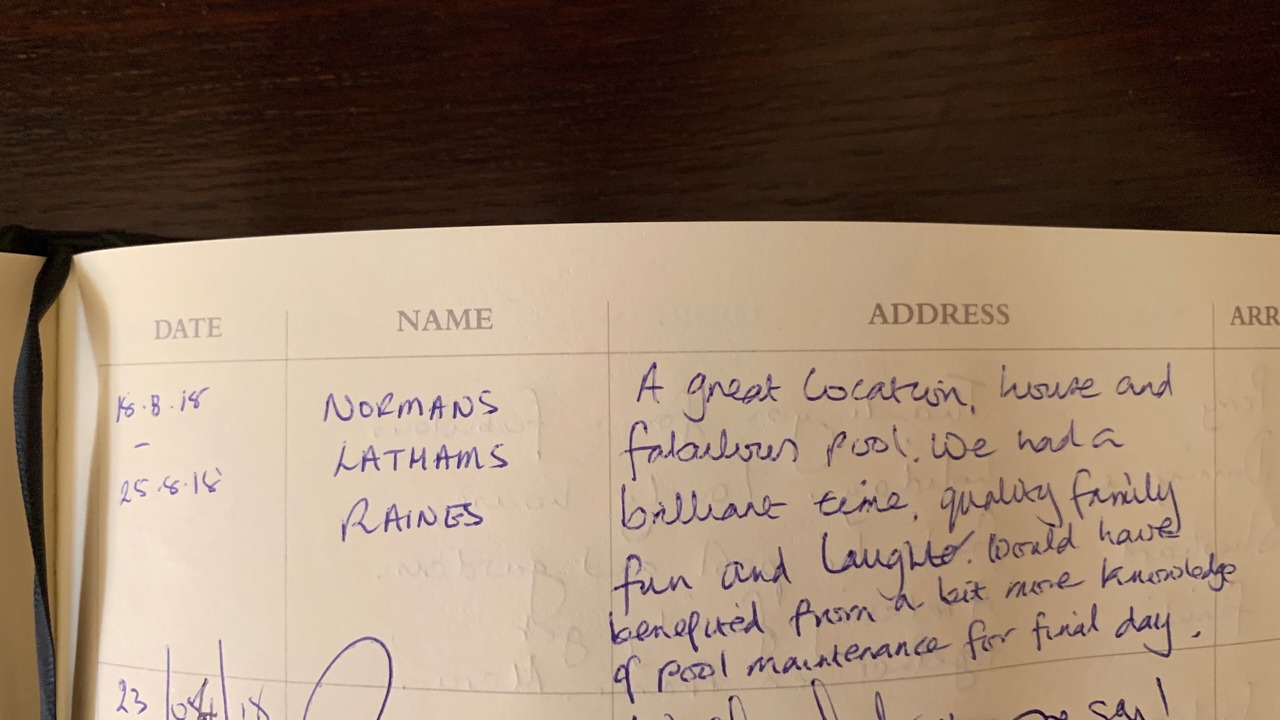 DATE NAME ADDRESS ARR
18.8.18
–
25.8.18
NORMANS
LATHAMS
RAINES
A great location, house and
fabulous pool. We had a
brilliant time, quality family
fun and laughter. Would have
benefited from a bit more knowledge
of pool maintenance for final day.
23/08/18
say!